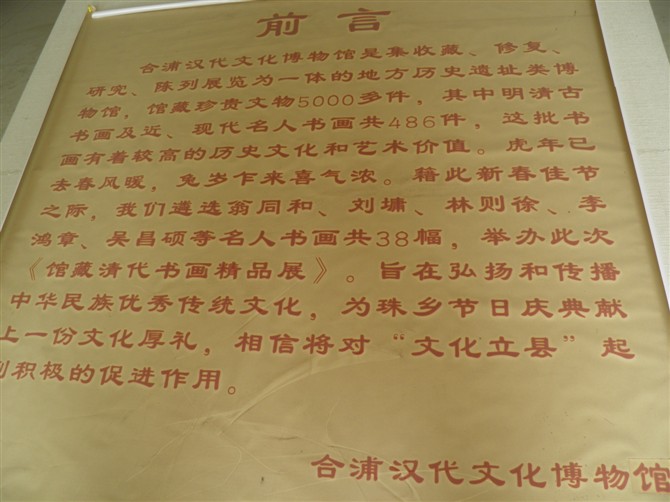 前言
合浦汉代文化博物馆是集收藏、修复、
研究、陈列展览为一体的地方历史遗址类博
物馆，馆藏珍贵文物5000多件，其中明清古
书画及近、现代名人书画共486件，这批书
画有着较高的历史文化和艺术价值。虎年已
去春风暖，兔岁乍来喜气浓。藉此新春佳节
之际，我们遴选翁同和、刘墉、林则徐、李
鸿章、吴昌硕等名人书画共38幅，举办此次
《馆藏清代书画精品展》。旨在弘扬和传播
中华民族优秀传统文化，为珠乡节日庆典献
上一份文化厚礼，相信将对“文化立县”起
到积极的促进作用。
合浦汉代文化博物馆